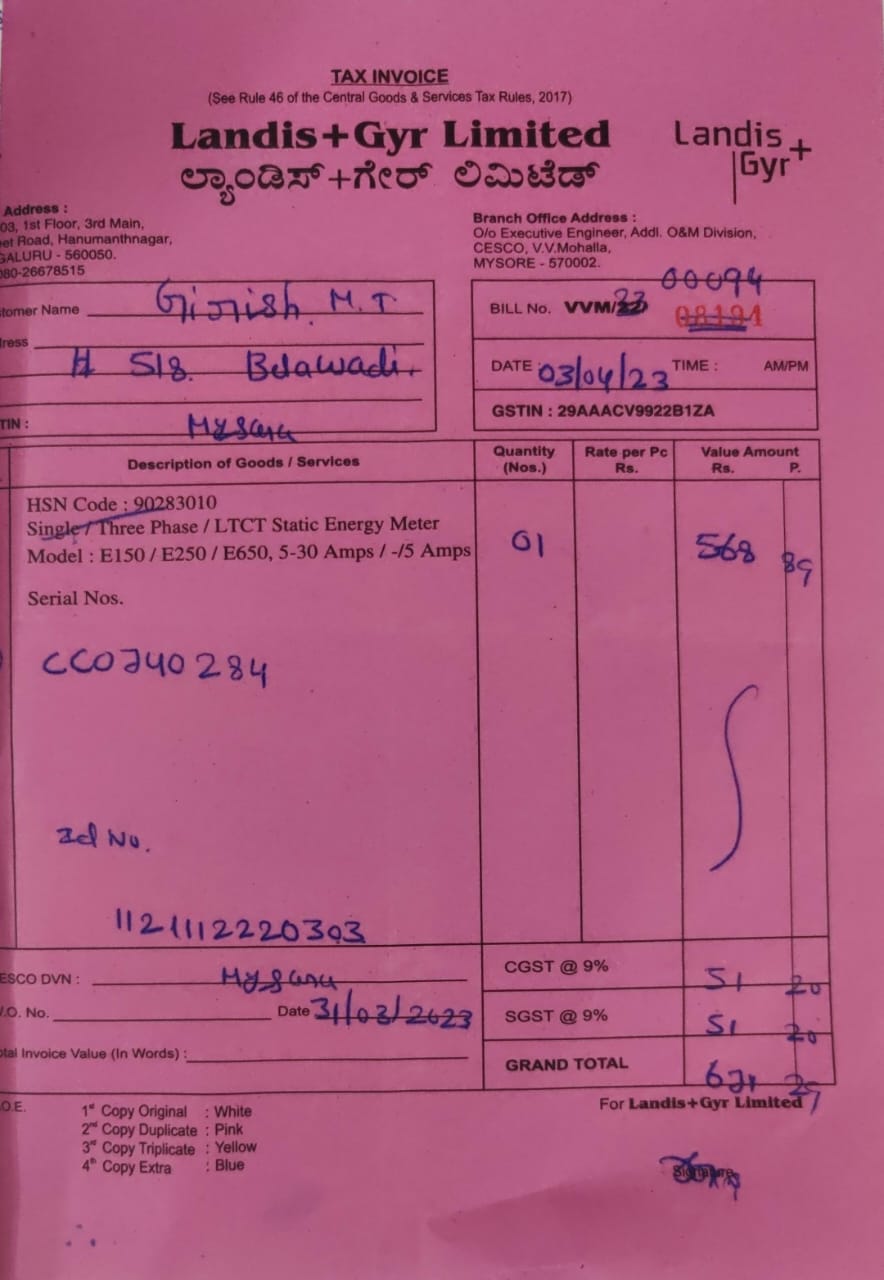 TAX INVOICE
(See Rule 46 of the Central Goods & Services Tax Rules, 2017)
Landis+Gyr Limited
ಲ್ಯಾಂಡಿಸ್+ಗೇರ್ ಲಿಮಿಟೆಡ್
Landis Gyr+
Address :
03, 1st Floor, 3rd Main,
et Road, Hanumanthnagar,
GALURU - 560050.
080-26678515
Branch Office Address :
O/o Executive Engineer, Addl. O&M Division,
CESCO, V.V.Mohalla,
MYSORE - 570002.
tomer Name Girish. M.T
ress
# 518. Belawadi,
TIN : Mysuru
00094
BILL No. VVM/23 08191
DATE 03/04/23 TIME : AM/PM
GSTIN : 29AAACV9922B1ZA
Description of Goods / Services Quantity (Nos.) Rate per Pc Rs. Value Amount Rs. P.
HSN Code : 90283010
Single / Three Phase / LTCT Static Energy Meter
Model : E150 / E250 / E650, 5-30 Amps / -/5 Amps 01 568 89
Serial Nos.
CC0740284
Id No.
1121112220303
ESCO DVN : Mysuru
CGST @ 9% 51 20
.O. No. Date 31/03/2023
SGST @ 9% 51 20
tal Invoice Value (In Words) :
GRAND TOTAL 671 29
O.E.
1st Copy Original : White
2nd Copy Duplicate : Pink
3rd Copy Triplicate : Yellow
4th Copy Extra : Blue
For Landis+Gyr Limited
Signature